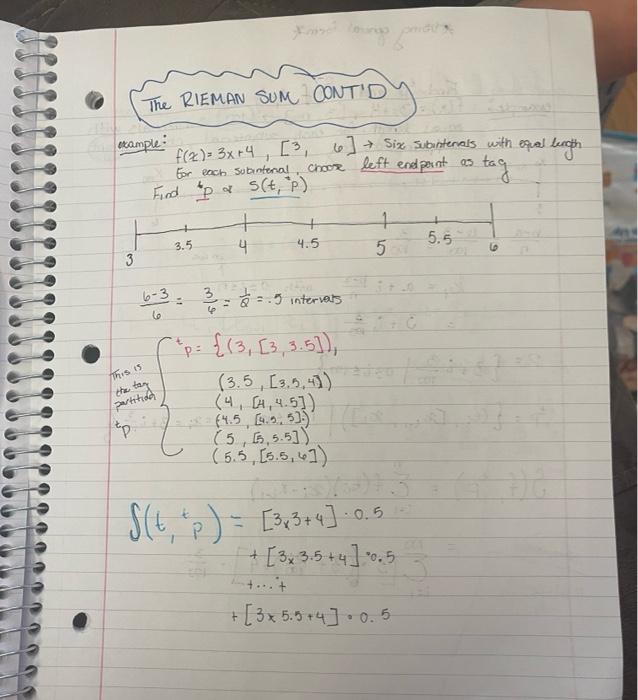 The RIEMAN SUM CONT'D
example:
f(x) = 3x+4 , [3, 6] → Six subintervals with equal length
For each subinterval, choose left endpoint as tag
Find ᵗp & S(t, ᵗp)
3 3.5 4 4.5 5 5.5 6
6-3/6 = 3/6 = 1/2 = .5 intervals
This is the tag partition ᵗp
ᵗp = {(3, [3, 3.5]),
(3.5, [3.5, 4])
(4, [4, 4.5])
(4.5, [4.5, 5])
(5, [5, 5.5])
(5.5, [5.5, 6])
S(t, ᵗp) = [3x3+4] · 0.5
+ [3x3.5+4] · 0.5
+...+
+ [3x5.5+4] · 0.5